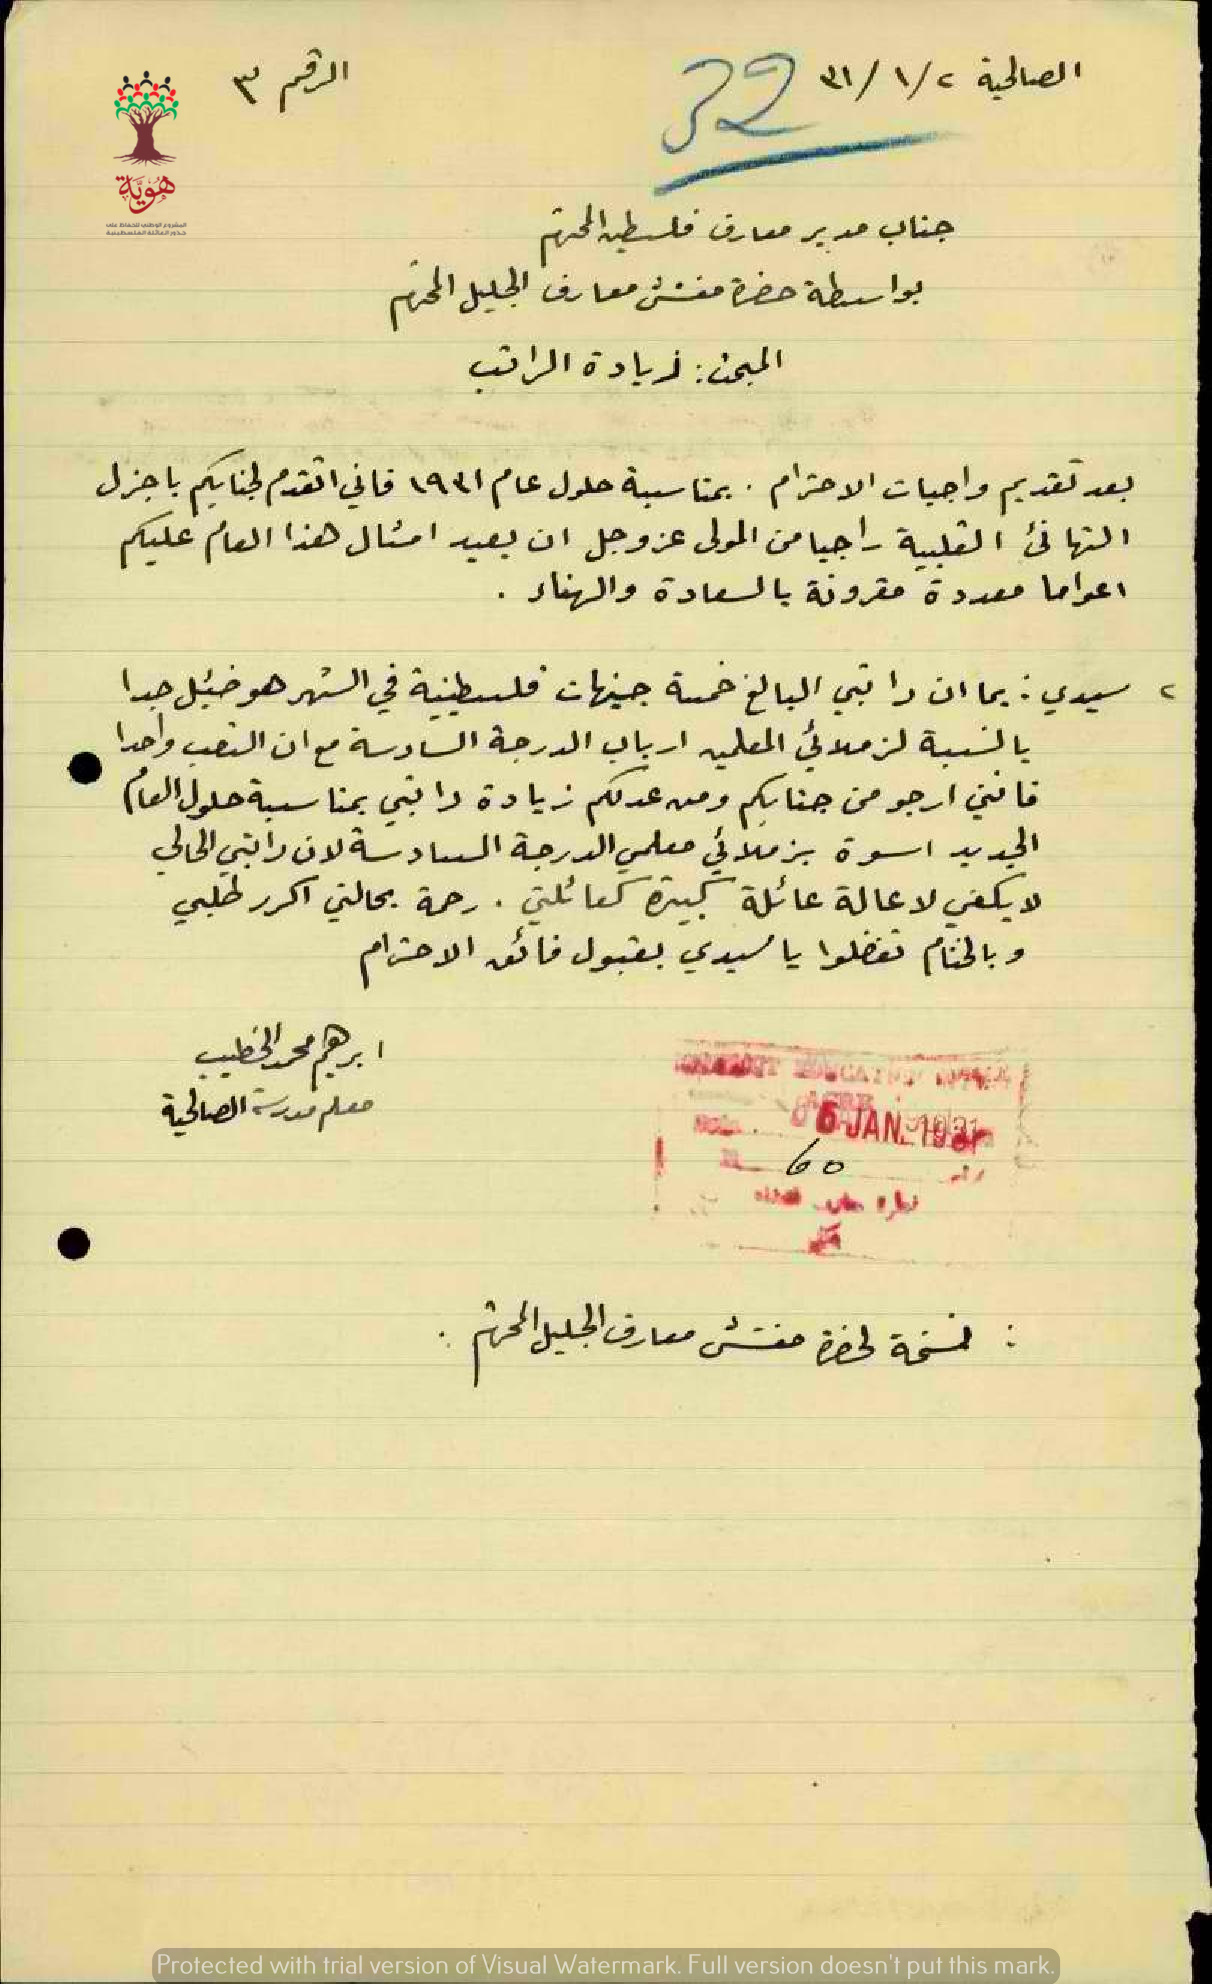 الصالحية ٢/١/٣١
الرقم ٣
32
هوية
المشروع الوطني للحفاظ على
جذور العائلة الفلسطينية
جناب مدير معارف فلسطين المحترم
بواسطة حضرة مفتش معارف الجليل المحترم
المبحث: زيادة الراتب
بعد تقديم واجبات الاحترام . بمناسبة حلول عام ١٩٣١ فاني اتقدم لجنابكم باجزل
التهانئ القلبية راجيا من المولى عز وجل ان يعيد امثال هذا العام عليكم
اعواما معددة مقرونة بالسعادة والهناء .
٢ سيدي : بما ان راتبي البالغ خمسة جنيهات فلسطينية في الشهر هو ضئيل جدا
بالنسبة لزملائي المعلمين ارباب الدرجة السادسة مع ان التعب واحدا
فانني ارجو من جنابكم ومن عدلكم زيادة راتبي بمناسبة حلول العام
الجديد اسوة بزملائي معلمي الدرجة السادسة لان راتبي الحالي
لا يكفي لاعالة عائلة كبيرة كعائلتي . رحمة بحالتي اكرر طلبي
وبالختام تفضلوا يا سيدي بقبول فائق الاحترام
ابرهيم محمد الخطيب
معلم مدرسة الصالحية
ACRE
6 JAN 1931
60
: نسخة لحضرة مفتش معارف الجليل المحترم :
Protected with trial version of Visual Watermark. Full version doesn't put this mark.